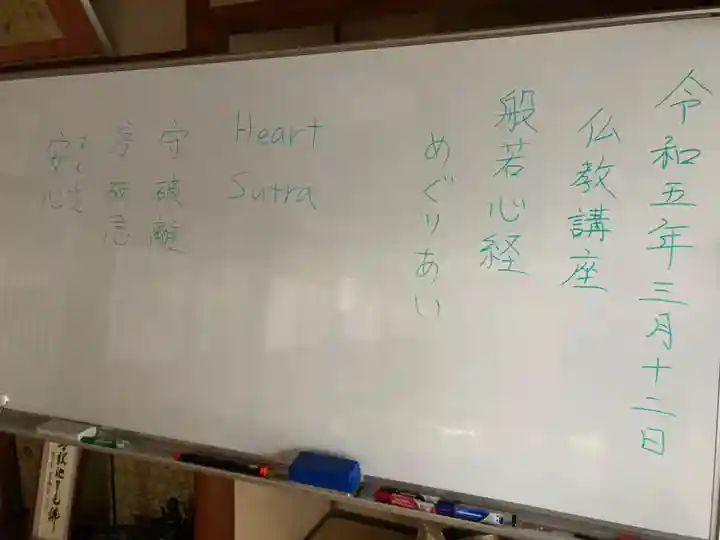 令和五年三月十二日
仏教講座
般若心経
めぐりあい
Heart
Sutra
守破離
安心